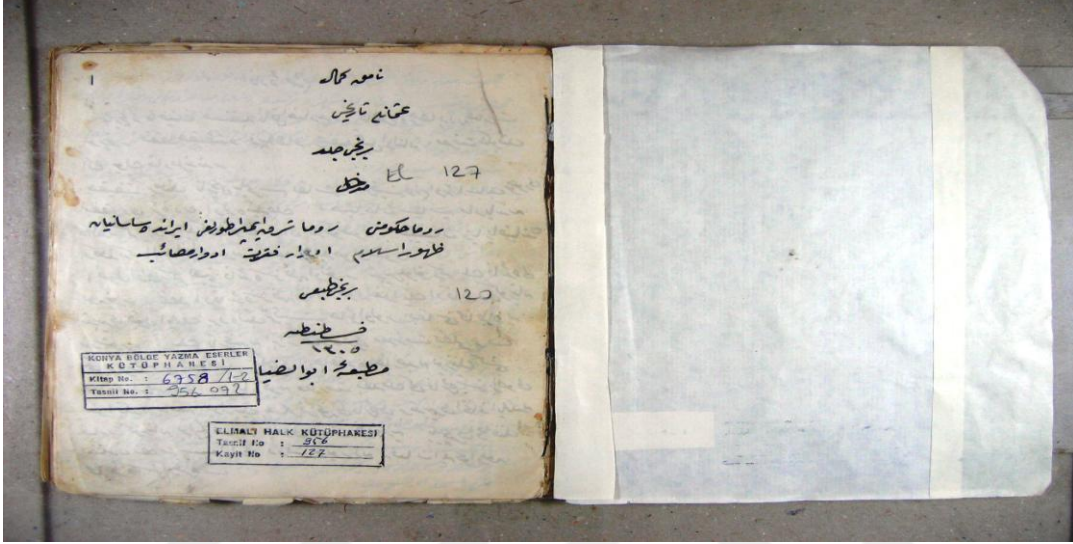 ١
نامق كمال
عثمانلی تاریخی
برنجی جلد
مدخل
127
روما حكومتی روما شرق ایمپراطورلغی ایرانده ساسانیان
ظهور اسلام ادوار فترت ادوار مصائب
برنجی طبعی
120
قسطنطنیه
١٣٠٥
مطبعهٔ ابوالضیا
KONYA BÖLGE YAZMA ESERLER
KÜTÜPHANESİ
Kitap No. : 6758 /1-2
Tasnif No. : 956 092
ELMALI HALK KÜTÜPHANESİ
Tasnif No : 956
Kayıt No : 127